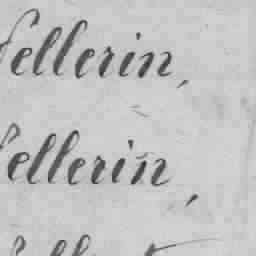 fellerin,
fellerin,